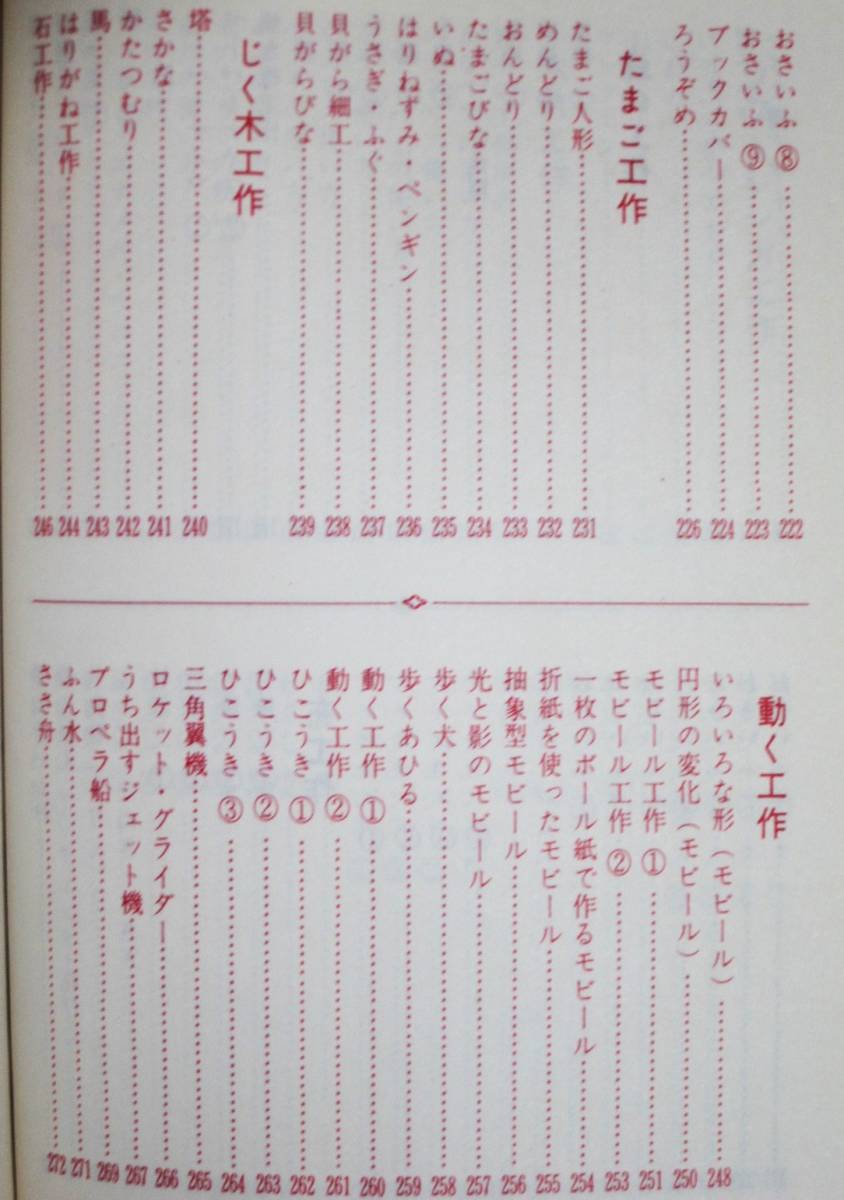 おさいふ⑧……222
おさいふ⑨……223
ブックカバー……224
ろうぞめ……226
たまご工作
たまご人形……231
めんどり……232
おんどり……233
たまごびな……234
いぬ……235
はりねずみ・ペンギン……236
うさぎ・ふぐ……237
貝がら細工……238
貝がらびな……239
じく木工作
塔……240
さかな……241
かたつむり……242
馬……243
はりがね工作……244
石工作……246
動く工作
いろいろな形（モビール）……248
円形の変化（モビール）……250
モビール工作①……251
モビール工作②……253
一枚のボール紙で作るモビール……254
折紙を使ったモビール……255
抽象型モビール……256
光と影のモビール……257
歩く犬……258
歩くあひる……259
動く工作①……260
動く工作②……261
ひこうき①……262
ひこうき②……263
ひこうき③……264
三角翼機……265
ロケット・グライダー……266
うち出すジェット機……267
プロペラ船……269
ふん水……271
ささ舟……272